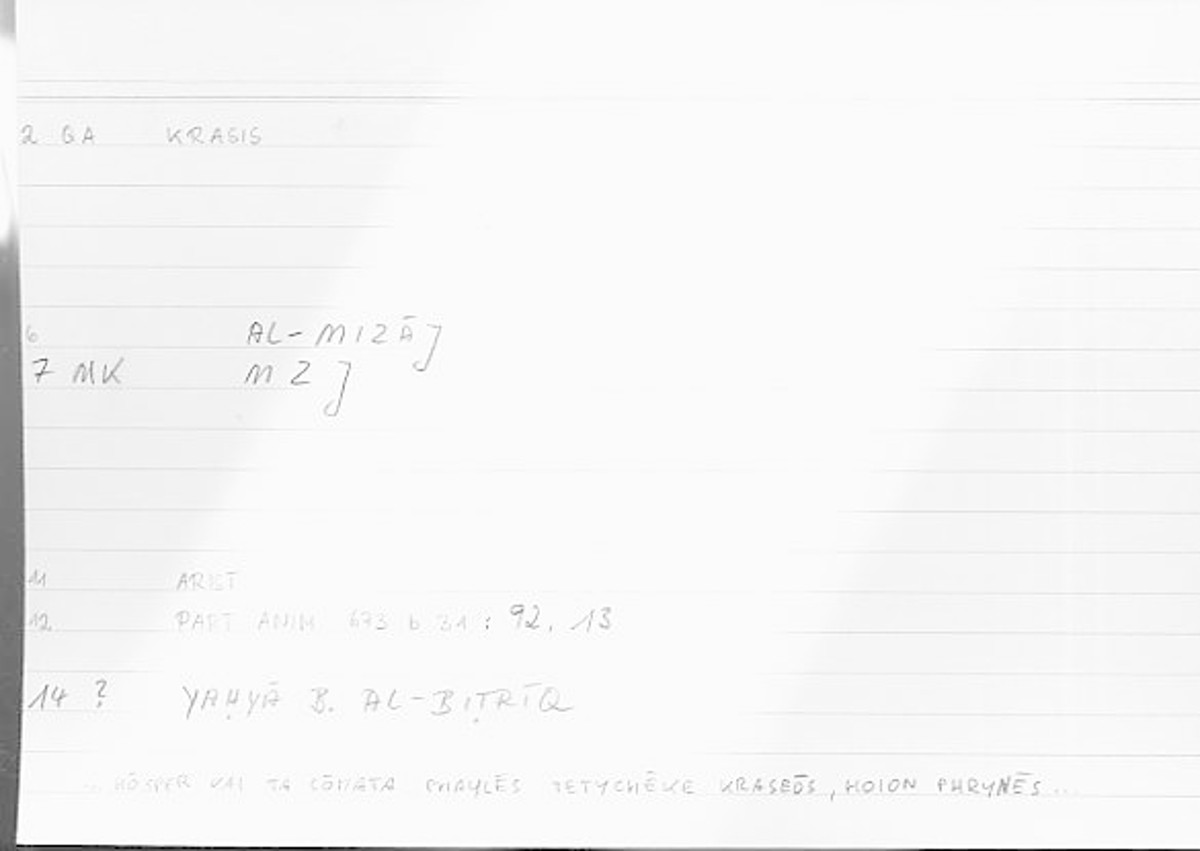 2 GA KRASIS
6 AL-MIZĀJ
7 MK MZJ
11 ARIST
12 PART ANIM 673 b 31 : 92, 13
14 ? YAḤYĀ B. AL-BIṬRĪQ
... HŌSPER KAI TA SŌMATA PHAYLĒS TETYCHĒKE KRASEŌS, HOION PHRYNĒS ...